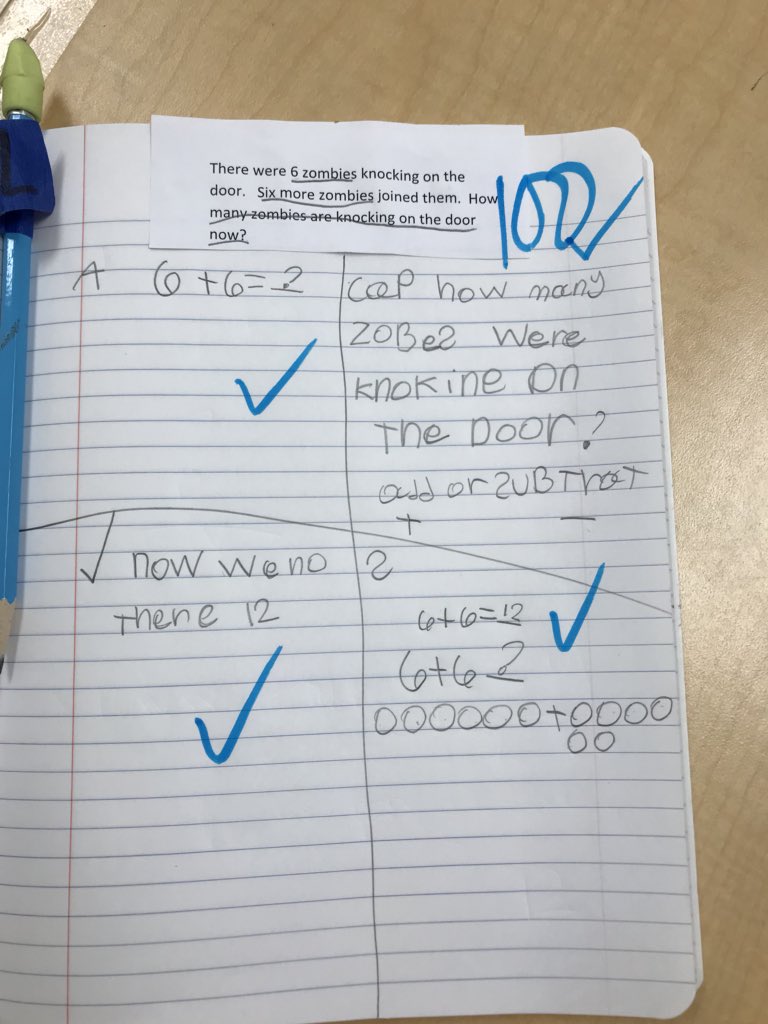 There were 6 zombies knocking on the
door. Six more zombies joined them. How
many zombies are knocking on the door
now?
100
A 6+6=?
how many
ZOBes Were
KnoKine On
The Door?
add or SUBTraT
+ −
√ now we no
There 12
S
6+6=12
6+6 ?
000000+0000
00